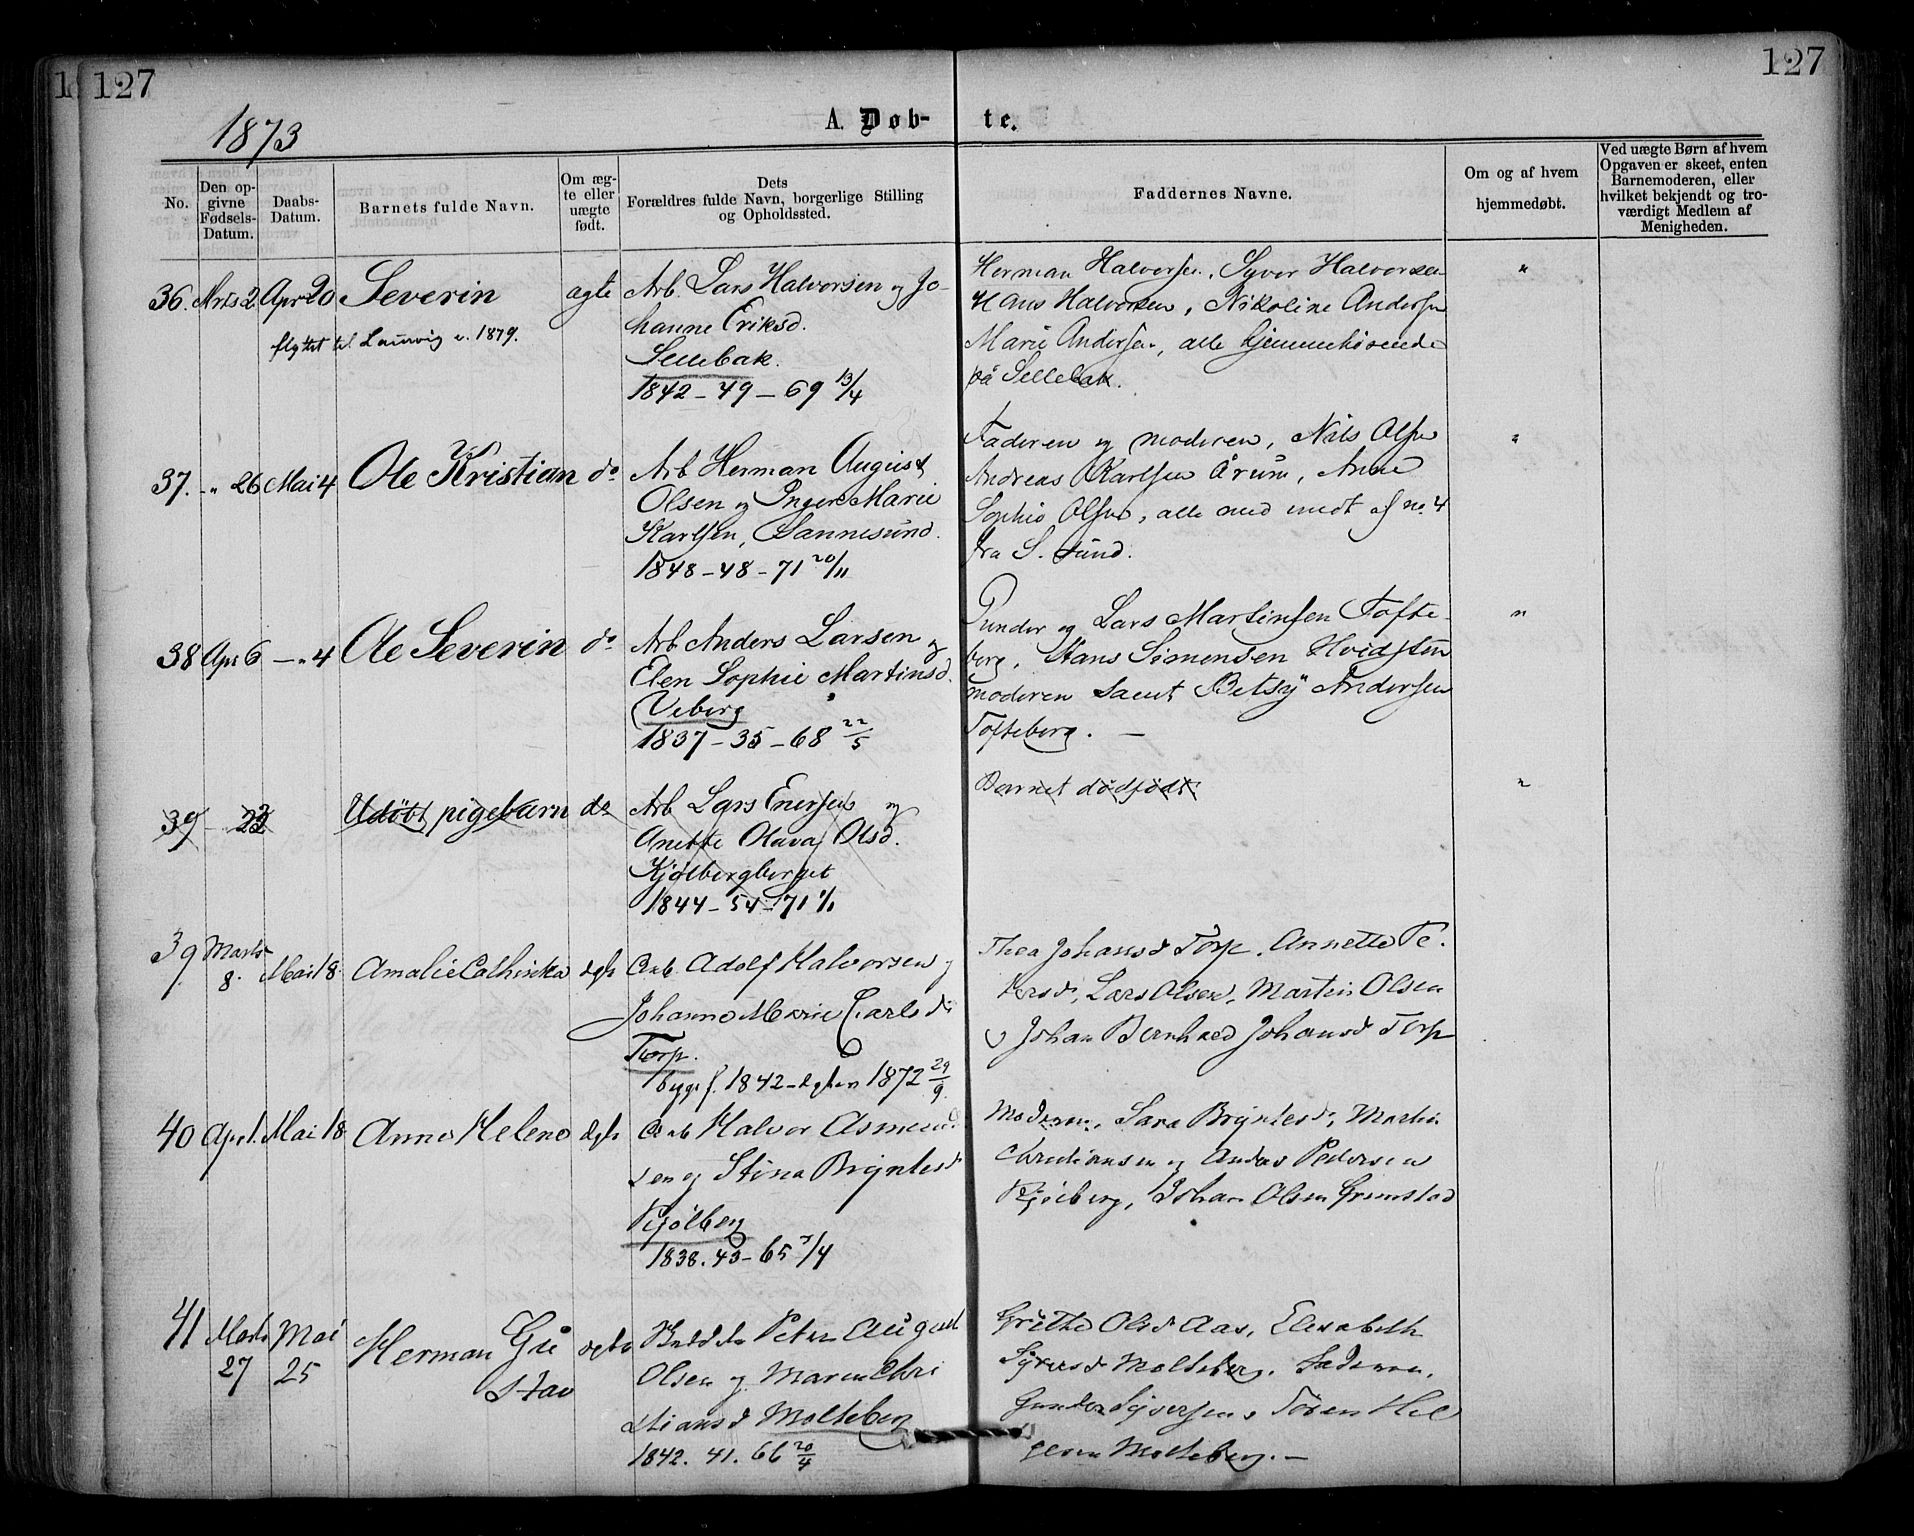 127
127
1873
A. Døb-
te.
No.
Den op-
givne
Fødsels-
Datum.
Daabs-
Datum.
Barnets fulde Navn.
Om æg-
te eller
uægte
født.
Dets
Forældres fulde Navn, borgerlige Stilling
og Opholdssted.
Faddernes Navne.
Om og af hvem
hjemmedøbt.
Ved uægte Børn af hvem
Opgaven er skeet, enten
Barnemoderen, eller
hvilket bekjendt og tro-
værdigt Medlem af
Menigheden.
36. Mrts 2 Apr 20 Severin ægte
flyttet til Laurvig 1879.
Arb. Lars Halvorsen og Jo-
hanne Eriksd.
Sellebak.
1842 - 49 - 69 13/4
Herman Halvorsen, Syver Halvorsen
Hans Halvorsen, Nikoline Andersen
Marie Andersen, alle hjemmehørende
på Sellebak.
"
37. - " 26 Mai 4 Ole Kristian do
Arb Herman August
Olsen og Inger Marie
Karlsen, Sannesund.
1848 - 48 - 71 20/11
Faderen og moderen, Nils Olsen
Andreas Karlsen Årum, Anne
Sophie Olsen, alle med undt af no. 4
fra S. sund.
"
38 Apr 6 - " 4 Ole Severin do
Arb Anders Larsen og
Elen Sophie Martinsd.
Veberg
1837 - 35 - 68 22/5
Gunder og Lars Martinsen Tofte-
berg, Hans Simensen Hvidsten
moderen samt Betsy Andersen
Tofteberg. -
"
39 - 22 Udøbt pigebarn do
Arb Lars Enersen og
Anette Olava Olsd.
Kjølbergberget
1844 - 54 - 71 1/11
Barnet dødfødt
"
39 Marts 8. Mai 18. Amalie Cathinka ægte
Arb. Adolf Halvorsen og
Johanne Marie Carlsd
Torp.
bygsf. 1842 - ægtev 1872 29/9.
Thea Johansd Torp, Annette Pe-
dersd, Lars Olsen, Martin Olsen
og Johan Bernhard Johansd Torp
40 Apr 1. Mai 18 Anne Helene ægte
Arb Halvor Asmund
sen og Stina Bryntesd
Kjølberg
1838. 43 - 65 7/4
Moderen, Sara Bryntesd, Martin
Christiansen og Anders Pedersen
Kjølberg, Johan Olsen Grimstad
41 Marts 27 Mai 25 Herman Gu
stav
ægte
Peter August
Olsen og Maren Chri
stiansd Molteberg
1842. 41. 66 20/4
Grethe Olsd Aas, Elisabeth
Syversd Molteberg, Faderen,
Gunder Syversen, Toren Hel
gesen Molteberg. -